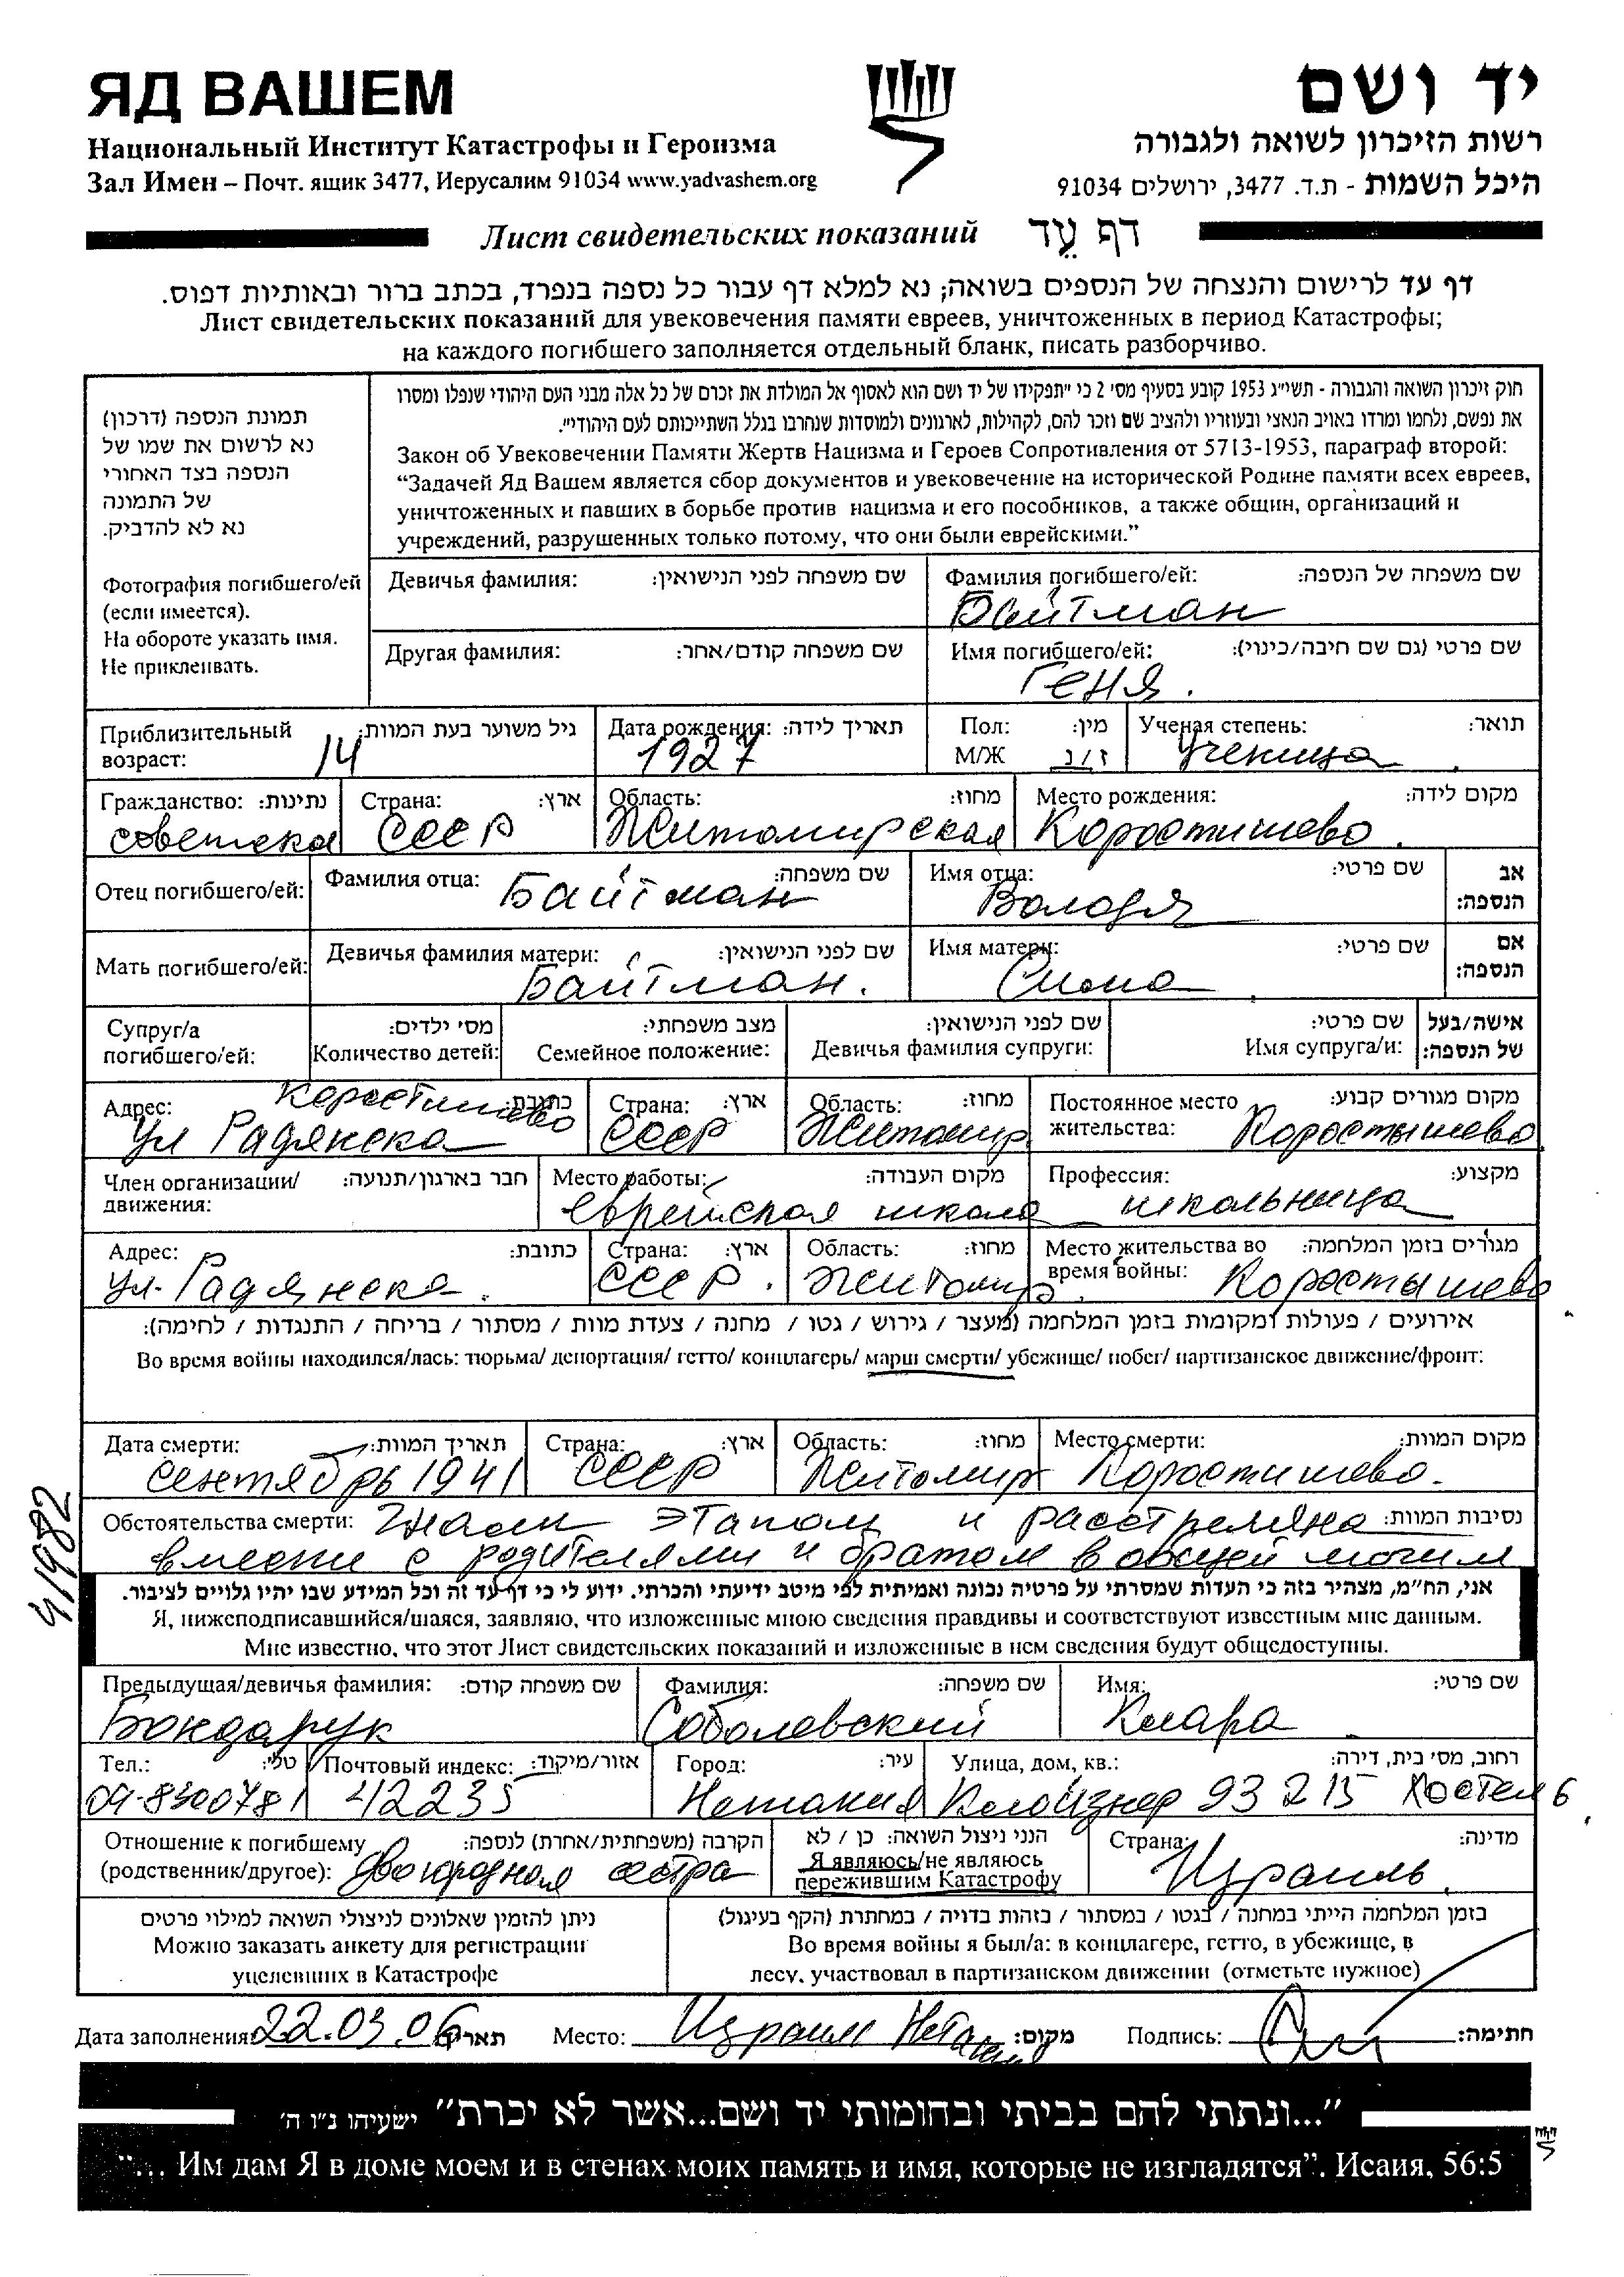 ЯД ВАШЕМ
יד ושם
Национальный Институт Катастрофы и Героизма
רשות הזיכרון לשואה ולגבורה
Зал Имен – Почт. ящик 3477, Иерусалим 91034 www.yadvashem.org
היכל השמות - ת.ד. 3477, ירושלים 91034
Лист свидетельских показаний דף עֵד
דף עד לרישום והנצחה של הנספים בשואה; נא למלא דף עבור כל נספה בנפרד, בכתב ברור ובאותיות דפוס.
Лист свидетельских показаний для увековечения памяти евреев, уничтоженных в период Катастрофы;
на каждого погибшего заполняется отдельный бланк, писать разборчиво.
תמונת הנספה (דרכון)
נא לרשום את שמו של
הנספה בצד האחורי
של התמונה
נא לא להדביק.
Фотография погибшего/ей
(если имеется).
На обороте указать имя.
Не приклеивать.
חוק זיכרון השואה והגבורה - תשי״ג 1953 קובע בסעיף מס׳ 2 כי ״תפקידו של יד ושם הוא לאסוף אל המולדת את זכרם של כל אלה מבני העם היהודי שנפלו ומסרו
את נפשם, נלחמו ומרדו באויב הנאצי ובעוזריו ולהציב שם וזכר להם, לקהילות, לארגונים ולמוסדות שנחרבו בגלל השתייכותם לעם היהודי״.
Закон об Увековечении Памяти Жертв Нацизма и Героев Сопротивления от 5713-1953, параграф второй:
“Задачей Яд Вашем является сбор документов и увековечение на исторической Родине памяти всех евреев,
уничтоженных и павших в борьбе против нацизма и его пособников, а также общин, организаций и
учреждений, разрушенных только потому, что они были еврейскими.”
Девичья фамилия: שם משפחה לפני הנישואין:
Фамилия погибшего/ей: שם משפחה של הנספה:
Байтман
Другая фамилия: שם משפחה קודם/אחר:
Имя погибшего/ей: שם פרטי (גם שם חיבה/כינוי):
Геня.
Приблизительный возраст: גיל משוער בעת המוות:
14
Дата рождения: תאריך לידה:
1927
Пол: מין:
М/Ж ז/נ
Ученая степень: תואר:
Ученица
Гражданство: נתינות:
советска
Страна: ארץ:
СССР
Область: מחוז:
Житомирская
Место рождения: מקום לידה:
Коростишево.
Отец погибшего/ей:
Фамилия отца: שם משפחה:
Байтман
Имя отца: שם פרטי:
Володя
אב
הנספה:
Мать погибшего/ей:
Девичья фамилия матери: שם לפני הנישואין:
Байтман.
Имя матери: שם פרטי:
Сима
אם
הנספה:
Супруг/а
погибшего/ей:
מס׳ ילדים:
Количество детей:
מצב משפחתי:
Семейное положение:
שם לפני הנישואין:
Девичья фамилия супруги:
שם פרטי:
Имя супруга/и:
אישה/בעל
של הנספה:
Адрес: כתובת:
Коростишево
ул Радянска
Страна: ארץ:
СССР
Область: מחוז:
Житомир
Постоянное место
жительства: מקום מגורים קבוע:
Коростышево
Член организации/
движения: חבר בארגון/תנועה:
Место работы: מקום העבודה:
еврейская школа
Профессия: מקצוע:
школьница
Адрес: כתובת:
ул. Радянска.
Страна: ארץ:
СССР.
Область: מחוז:
Житомир.
Место жительства во
время войны: מגורים בזמן המלחמה:
Коростышево
אירועים / פעולות ומקומות בזמן המלחמה (מעצר / גירוש / גטו / מחנה / צעדת מוות / מסתור / בריחה / התנגדות / לחימה):
Во время войны находился/лась: тюрьма/ депортация/ гетто/ концлагерь/ марш смерти/ убежище/ побег/ партизанское движение/фронт:
Дата смерти: תאריך המוות:
сентябрь 1941
Страна: ארץ:
СССР
Область: מחוז:
Житомир
Место смерти: מקום המוות:
Коростишево.
Обстоятельства смерти: Гнали этапом и расстреляна נסיבות המוות:
вмести с родителями и братом в общей могил
4/1982
אני, הח״מ, מצהיר בזה כי העדות שמסרתי על פרטיה נכונה ואמיתית לפי מיטב ידיעתי והכרתי. ידוע לי כי דף עד זה וכל המידע שבו יהיו גלויים לציבור.
Я, нижеподписавшийся/шаяся, заявляю, что изложенные мною сведения правдивы и соответствуют известным мне данным.
Мне известно, что этот Лист свидетельских показаний и изложенные в нем сведения будут общедоступны.
Предыдущая/девичья фамилия: שם משפחה קודם:
Бондарук
Фамилия: שם משפחה:
Соболевский
Имя: שם פרטי:
Клара
Тел.: טל׳:
09-8300781
Почтовый индекс: אזור/מיקוד:
42235
Город: עיר:
Нетания
Улица, дом, кв.: רחוב, מס׳ בית, דירה:
Клойзнер 93 215 Хостел 6
Отношение к погибшему
(родственник/другое): הקרבה (משפחתית/אחרת) לנספה:
двоюродная сестра
הנני ניצול השואה: כן / לא
Я являюсь/не являюсь
пережившим Катастрофу
Страна: מדינה:
Израиль.
ניתן להזמין שאלונים לניצולי השואה למילוי פרטים
Можно заказать анкету для регистрации
уцелевших в Катастрофе
בזמן המלחמה הייתי במחנה / בגטו / במסתור / בזהות בדויה / במחתרת (הקף בעיגול)
Во время войны я был/а: в концлагере, гетто, в убежище, в
лесу, участвовал в партизанском движении (отметьте нужное)
Дата заполнения: 22.03.06 תאריך Место: Израил Нетания מקום: Подпись: חתימה:
״...ונתתי להם בביתי ובחומותי יד ושם...אשר לא יכרת״ ישעיהו נ״ו ה׳
“... Им дам Я в доме моем и в стенах моих память и имя, которые не изгладятся”. Исаия, 56:5